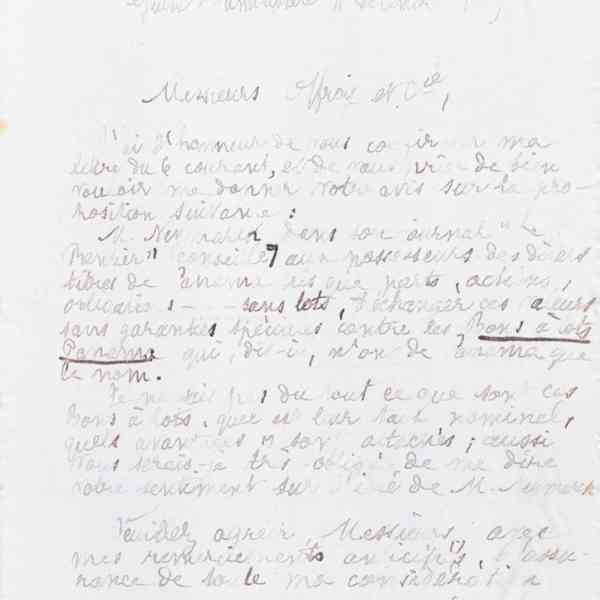 Messieurs Offroy et Cie,
J'ai l'honneur de vous confirmer ma
lettre du 6 courant, et de vous prier de bien
vouloir me donner votre avis sur la pro-
position suivante :
M. Neymarck dans son journal " Le
Rentier" conseille aux possesseurs des divers
titres de Panama tels que parts, actions,
obligations - - sans lots, d'échanger ces valeurs
sans garanties spéciales contre les Bons à lots
Panama qui, dit-il, n'ont de Panama que
le nom.
Je ne sais pas du tout ce que sont ces
Bons à lots, quel est leur taux nominal,
quels avantages y sont attachés ; aussi
vous serais-je très obligé de me dire
votre sentiment sur l'idée de M. Neymarck
Veuillez agréer, Messieurs, avec
mes remerciements anticipés, l'assu-
rance de toute ma considération